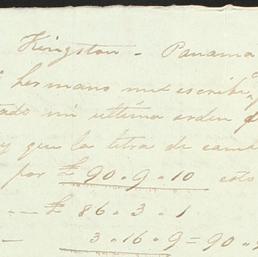 Kingston - Panama
hermano me escribe,
tado mi última orden
y que la letra de cam
por £ 90 . 9 . 10 esto
- - £ 86 . 3 . 1
- 3 . 16 . 9 = 90 .